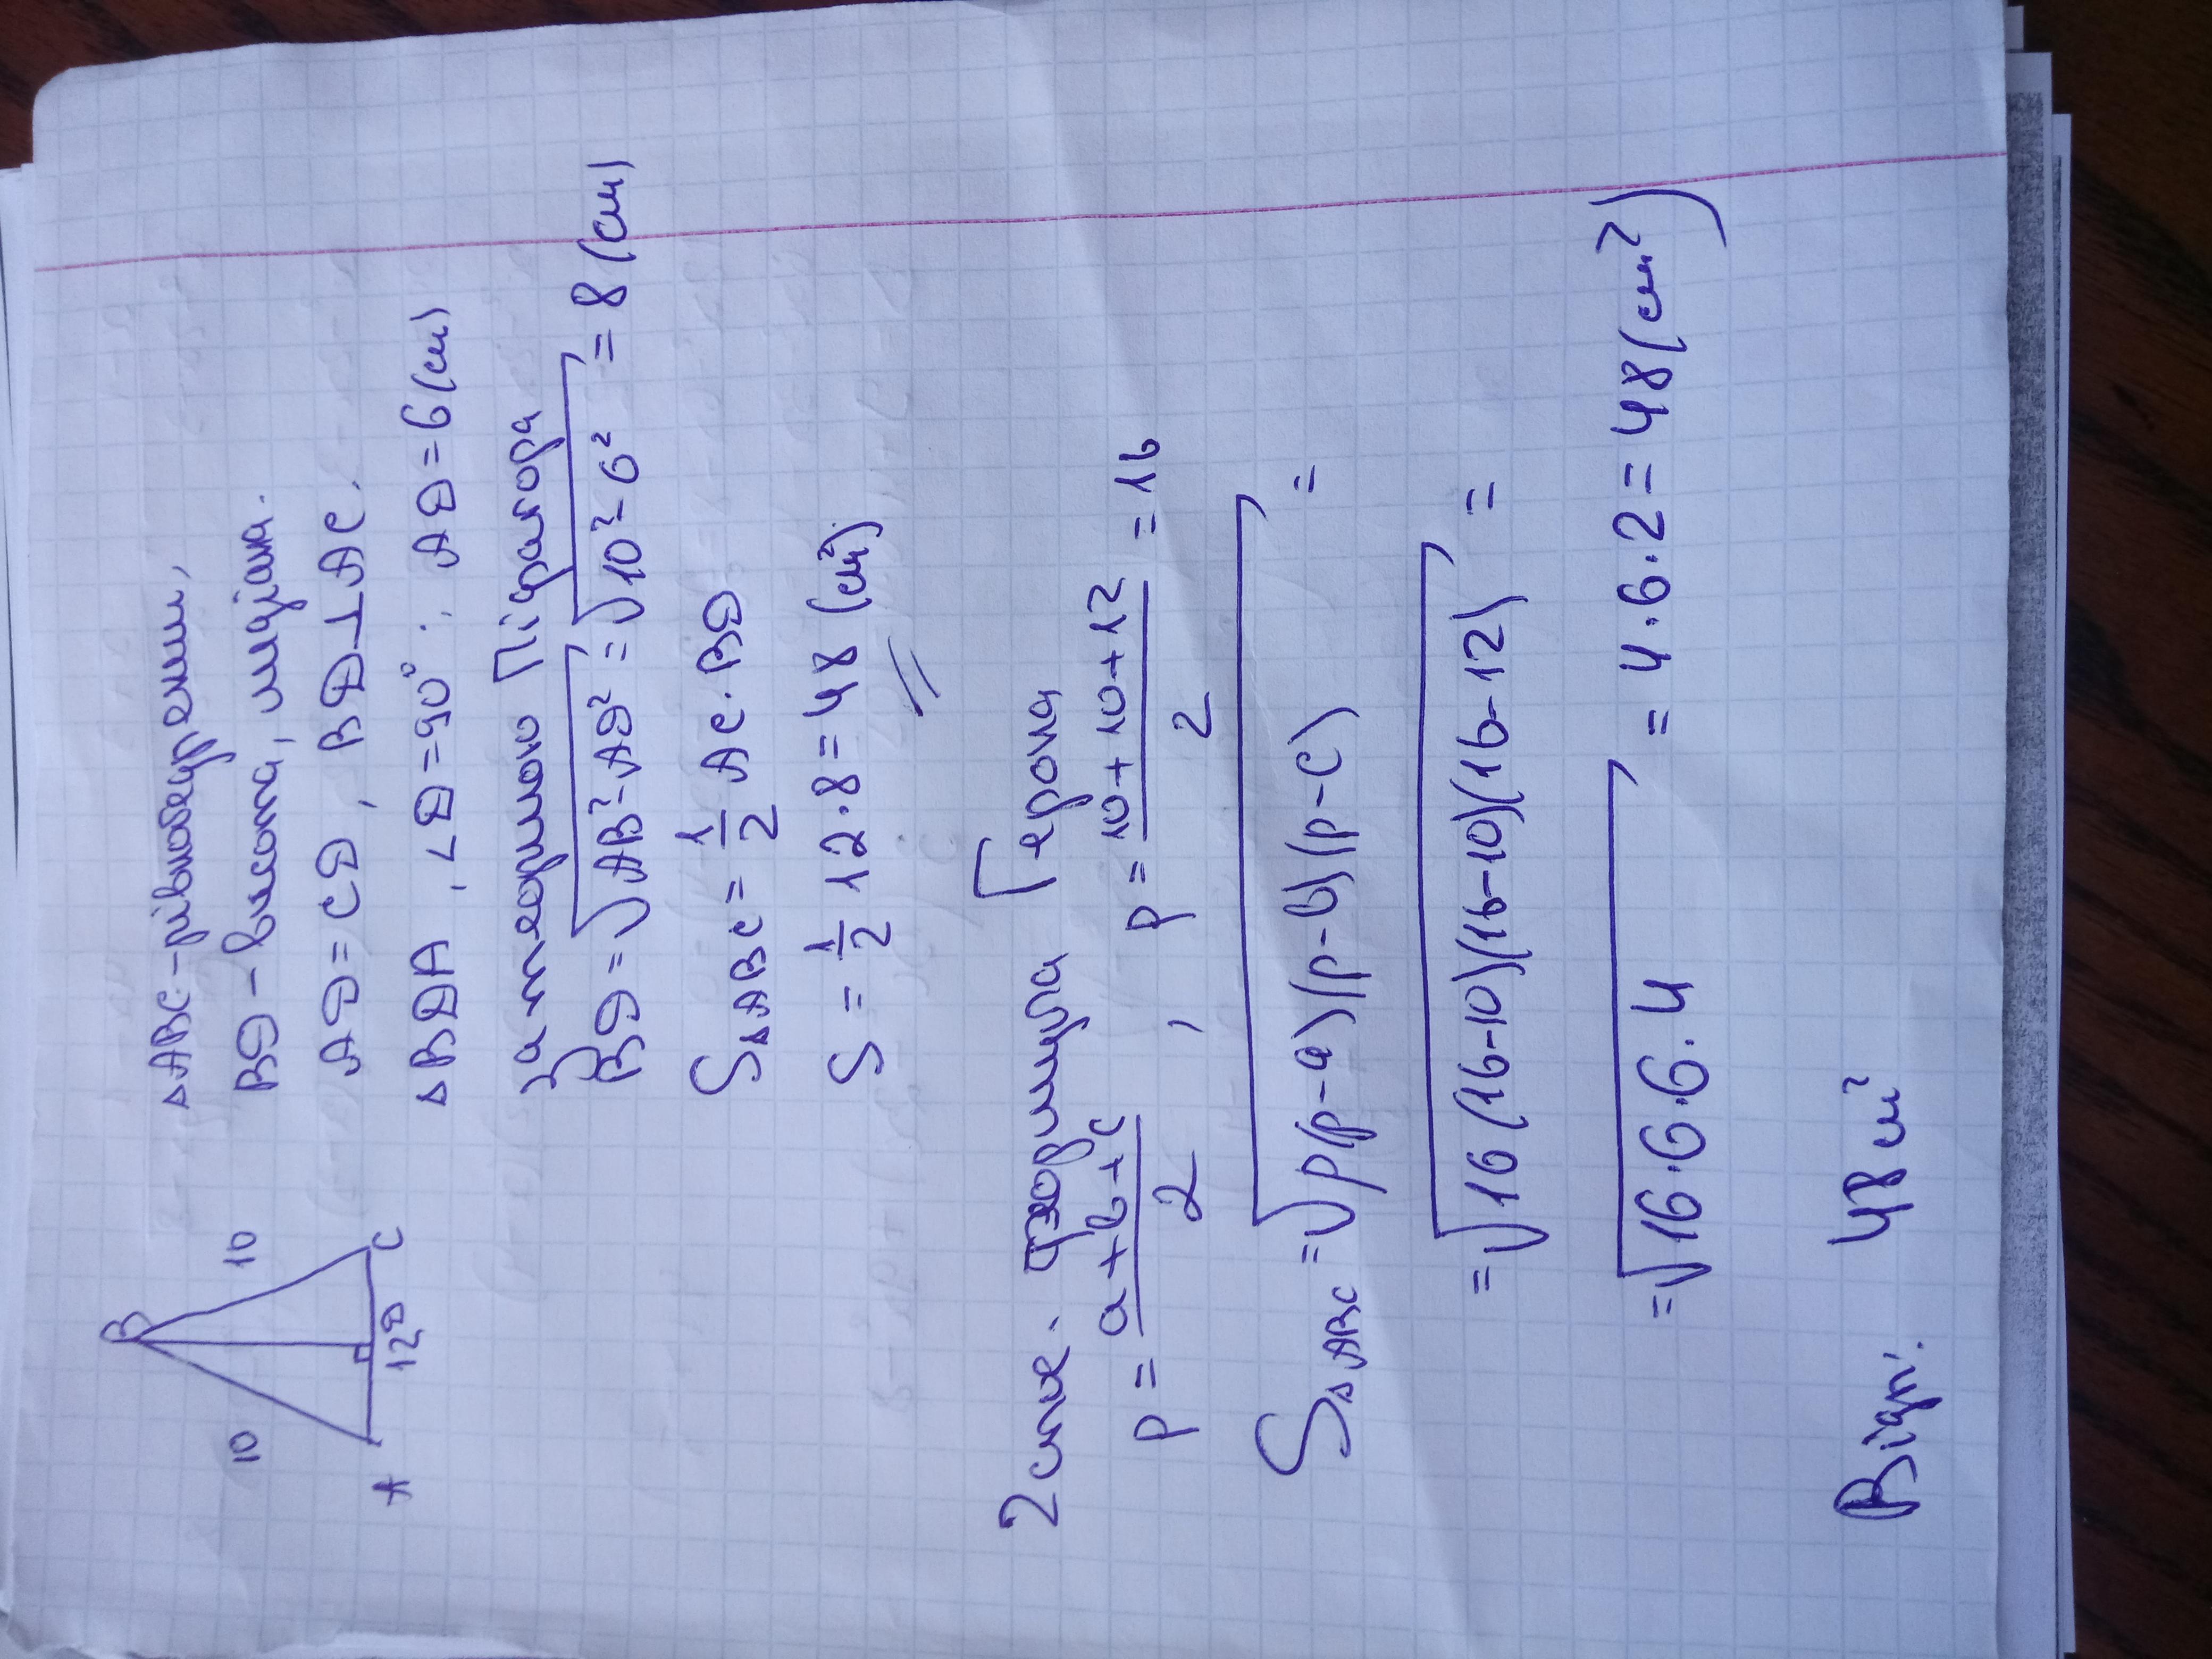 B
10
10
A
12
D
C
△ABC - рівнобедрений,
BD - висота, медіана.
AD = CD, BD⊥AC.
△BDA, ∠D=90°: AD=6(см)
За теоремою Піфагора
BD=√AB²-AD² = √10²-6² = 8(см)
S△ABC = 1/2 AC·BD
S = 1/2 12·8=48 (см²)
2 спос. формула Герона
p = a+b+c/2, p = 10+10+12/2 = 16
S△ABC = √p(p-a)(p-b)(p-c) =
= √16(16-10)(16-10)(16-12) =
= √16·6·6·4 = 4·6·2=48(см²)
Відп: 48 см²